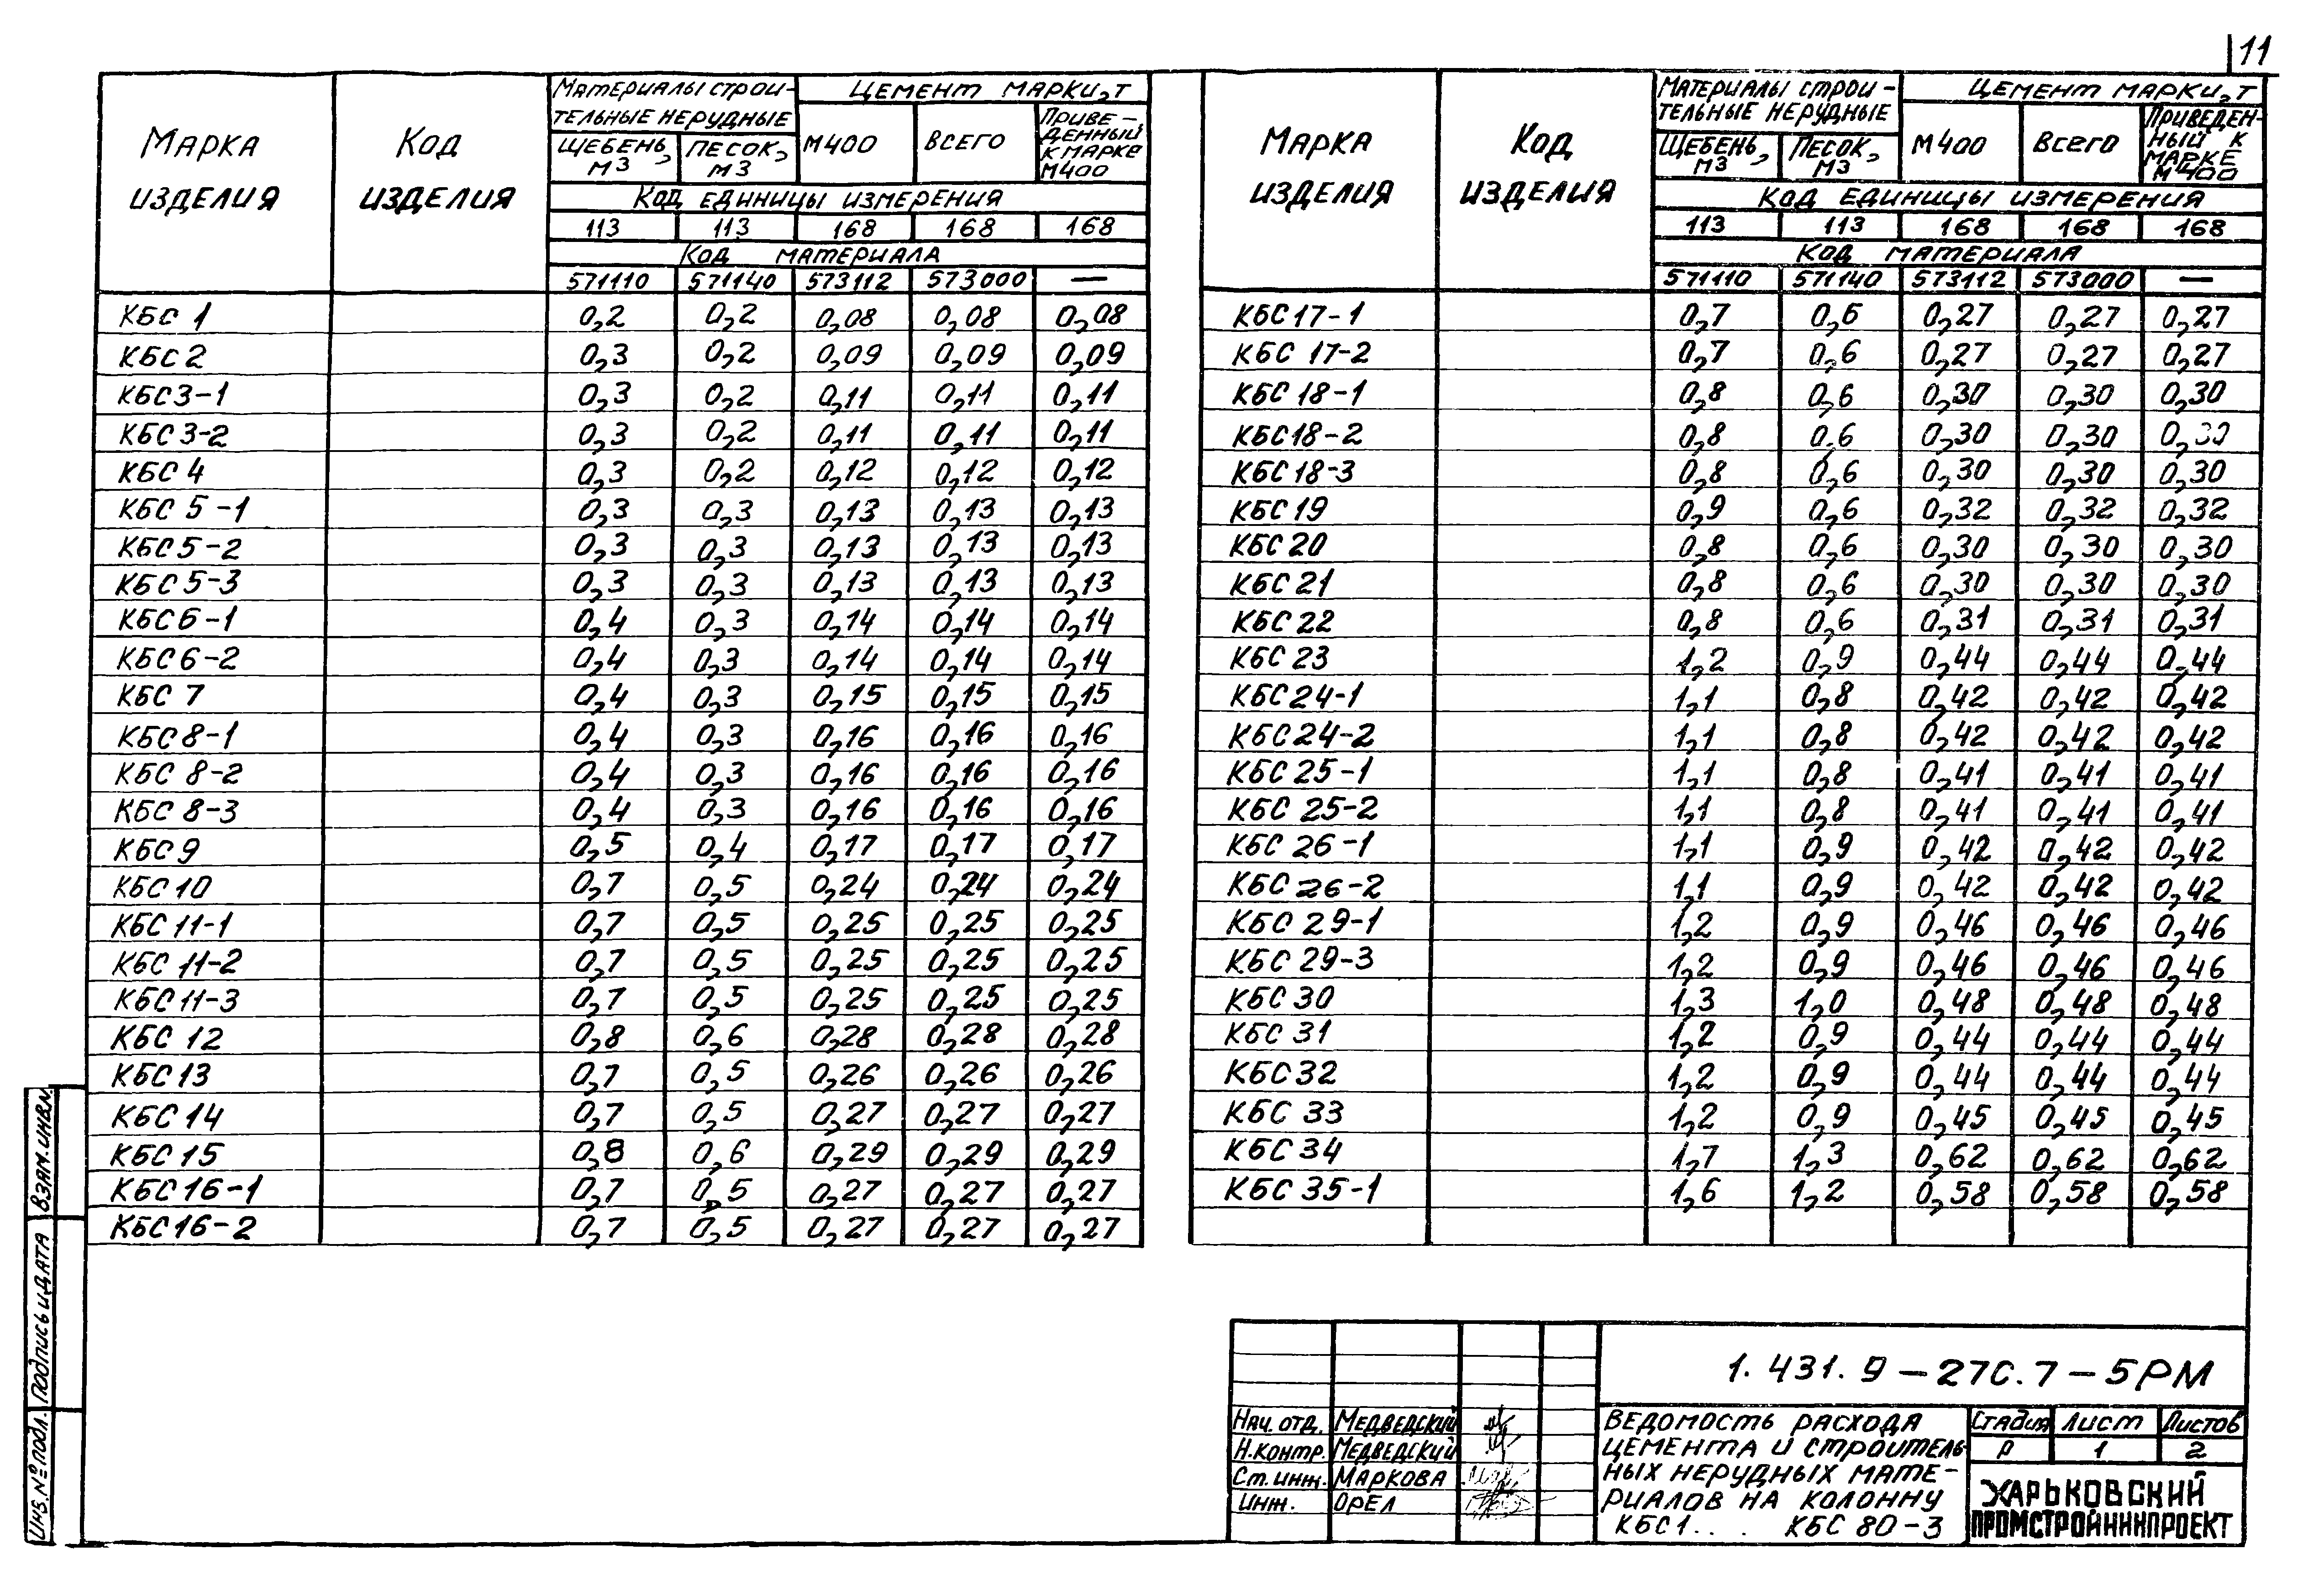 11
МАРКА ИЗДЕЛИЯ | КОД ИЗДЕЛИЯ | МАТЕРИАЛЫ СТРОИ-ТЕЛЬНЫЕ НЕРУДНЫЕ | ЦЕМЕНТ МАРКИ, Т
ЩЕБЕНЬ, М3 | ПЕСОК, М3 | М400 | ВСЕГО | ПРИВЕ-ДЕННЫЙ К МАРКЕ М400
КОД ЕДИНИЦЫ ИЗМЕРЕНИЯ
113 113 168 168 168
КОД МАТЕРИАЛА
571110 571140 573112 573000 —
КБС 1 0,2 0,2 0,08 0,08 0,08
КБС 2 0,3 0,2 0,09 0,09 0,09
КБС 3-1 0,3 0,2 0,11 0,11 0,11
КБС 3-2 0,3 0,2 0,11 0,11 0,11
КБС 4 0,3 0,2 0,12 0,12 0,12
КБС 5-1 0,3 0,3 0,13 0,13 0,13
КБС 5-2 0,3 0,3 0,13 0,13 0,13
КБС 5-3 0,3 0,3 0,13 0,13 0,13
КБС 6-1 0,4 0,3 0,14 0,14 0,14
КБС 6-2 0,4 0,3 0,14 0,14 0,14
КБС 7 0,4 0,3 0,15 0,15 0,15
КБС 8-1 0,4 0,3 0,16 0,16 0,16
КБС 8-2 0,4 0,3 0,16 0,16 0,16
КБС 8-3 0,4 0,3 0,16 0,16 0,16
КБС 9 0,5 0,4 0,17 0,17 0,17
КБС 10 0,7 0,5 0,24 0,24 0,24
КБС 11-1 0,7 0,5 0,25 0,25 0,25
КБС 11-2 0,7 0,5 0,25 0,25 0,25
КБС 11-3 0,7 0,5 0,25 0,25 0,25
КБС 12 0,8 0,6 0,28 0,28 0,28
КБС 13 0,7 0,5 0,26 0,26 0,26
КБС 14 0,7 0,5 0,27 0,27 0,27
КБС 15 0,8 0,6 0,29 0,29 0,29
КБС 16-1 0,7 0,5 0,27 0,27 0,27
КБС 16-2 0,7 0,5 0,27 0,27 0,27
МАРКА ИЗДЕЛИЯ | КОД ИЗДЕЛИЯ | МАТЕРИАЛЫ СТРОИ-ТЕЛЬНЫЕ НЕРУДНЫЕ | ЦЕМЕНТ МАРКИ, Т
ЩЕБЕНЬ, М3 | ПЕСОК, М3 | М400 | ВСЕГО | ПРИВЕДЕН-НЫЙ К МАРКЕ М400
КОД ЕДИНИЦЫ ИЗМЕРЕНИЯ
113 113 168 168 168
КОД МАТЕРИАЛА
571110 571140 573112 573000 —
КБС 17-1 0,7 0,6 0,27 0,27 0,27
КБС 17-2 0,7 0,6 0,27 0,27 0,27
КБС 18-1 0,8 0,6 0,30 0,30 0,30
КБС 18-2 0,8 0,6 0,30 0,30 0,30
КБС 18-3 0,8 0,6 0,30 0,30 0,30
КБС 19 0,9 0,6 0,32 0,32 0,32
КБС 20 0,8 0,6 0,30 0,30 0,30
КБС 21 0,8 0,6 0,30 0,30 0,30
КБС 22 0,8 0,6 0,31 0,31 0,31
КБС 23 1,2 0,9 0,44 0,44 0,44
КБС 24-1 1,1 0,8 0,42 0,42 0,42
КБС 24-2 1,1 0,8 0,42 0,42 0,42
КБС 25-1 1,1 0,8 0,41 0,41 0,41
КБС 25-2 1,1 0,8 0,41 0,41 0,41
КБС 26-1 1,1 0,9 0,42 0,42 0,42
КБС 26-2 1,1 0,9 0,42 0,42 0,42
КБС 29-1 1,2 0,9 0,46 0,46 0,46
КБС 29-3 1,2 0,9 0,46 0,46 0,46
КБС 30 1,3 1,0 0,48 0,48 0,48
КБС 31 1,2 0,9 0,44 0,44 0,44
КБС 32 1,2 0,9 0,44 0,44 0,44
КБС 33 1,2 0,9 0,45 0,45 0,45
КБС 34 1,7 1,3 0,62 0,62 0,62
КБС 35-1 1,6 1,2 0,58 0,58 0,58
ИНВ. № ПОДЛ. ПОДПИСЬ И ДАТА ВЗАМ. ИНВ.№
1.431.9-27С.7-5РМ
НАЧ. ОТД. МЕДВЕДСКИЙ
Н.КОНТР. МЕДВЕДСКИЙ
СТ. ИНЖ. МАРКОВА
ИНЖ. ОРЕЛ
ВЕДОМОСТЬ РАСХОДА
ЦЕМЕНТА И СТРОИТЕЛЬ-
НЫХ НЕРУДНЫХ МАТЕ-
РИАЛОВ НА КОЛОННУ
КБС1... КБС 80-3
СТАДИЯ ЛИСТ ЛИСТОВ
Р 1 2
ХАРЬКОВСКИЙ
ПРОМСТРОЙНИИПРОЕКТ